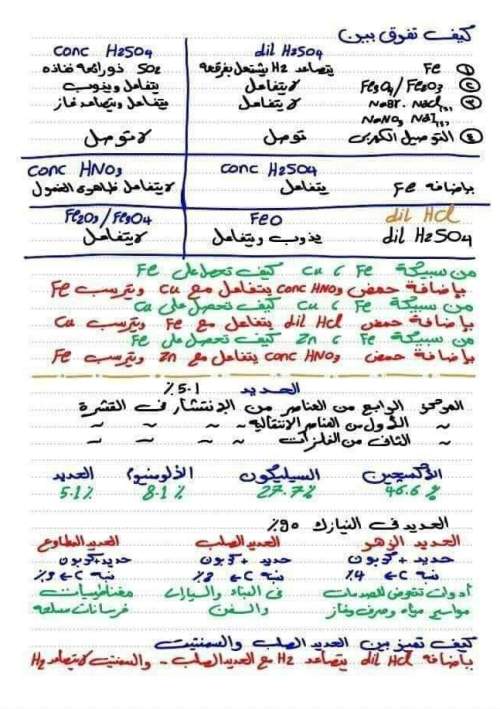 كيف تفرق بين
dil H2SO4 conc H2SO4
① Fe يتصاعد H2 يشتعل بفرقعة SO2 ذو رائحة نفاذه
② Fe3O4/Fe2O3 لا يتفاعل يتفاعل ويذوب
③ NaBr. NaCl لا يتفاعل يتفاعل ويتصاعد غاز
NaNO3
④ التوصيل الكهربى توصل لا توصل
conc H2SO4 conc HNO3
بإضافه Fe يتفاعل لا يتفاعل ظاهرة الخمول
dil HCl FeO Fe2O3/Fe3O4
dil H2SO4 يذوب ويتفاعل لا يتفاعل
من سبيكة Fe ، Cu كيف تحصل على Fe
بإضافة حمض conc HNO3 يتفاعل مع Cu ويترسب Fe
من سبيكة Fe ، Cu كيف تحصل على Cu
بإضافة حمض dil HCl يتفاعل مع Fe ويترسب Cu
من سبيكة Fe ، Zn كيف تحصل على Fe
بإضافة حمض conc HNO3 يتفاعل مع Zn ويترسب Fe
الحديد 5.1 ٪
الرابع من العناصر من الإنتشار فى القشرة
~ الأول من العناصر الإنتقالية ~ ~ ~
~ الثانى من الفلزات ~ ~ ~
الأكسجين السيليكون الألومنيوم الحديد
46.6 ٪ 27.7٪ 8.1 ٪ 5.1٪
الحديد فى النيازك 90٪
الحديد الزهر الحديد الصلب الحديد المطاوع
حديد + كربون حديد + كربون حديد + كربون
نسبة C ← 4٪ نسبة C ← 2٪ نسبة C ←
أدوات تتعرض للصدمات فى البناء والسيارات مغناطيسيات
مواسير مياه وصرف وغاز والسفن خرسانات مسلحه
كيف تميز بين الحديد الصلب والسمنتيت
بإضافه dil HCl يتصاعد H2 مع الحديد الصلب - والسمنتيت لا يتصاعد H2